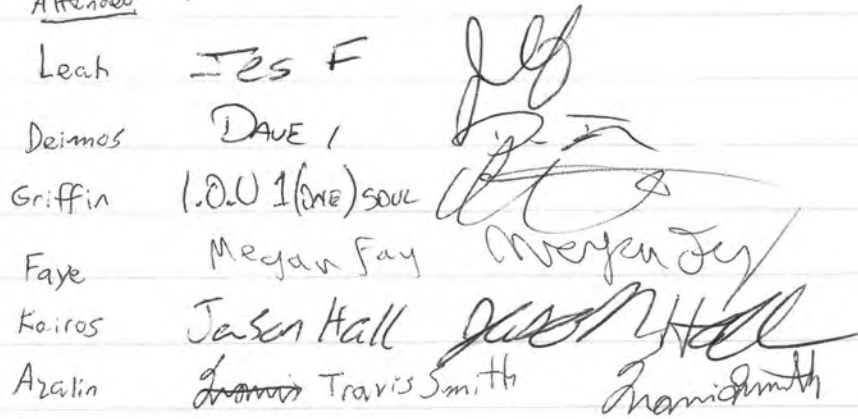 Attended
Leah Jes F
Deimos DAVE I
Griffin I.O.U 1(ONE) SOUL
Faye Megan Fay Megan Fay
Kairos Jason Hall Jason Hall
Azalin Travis Smith Travis Smith